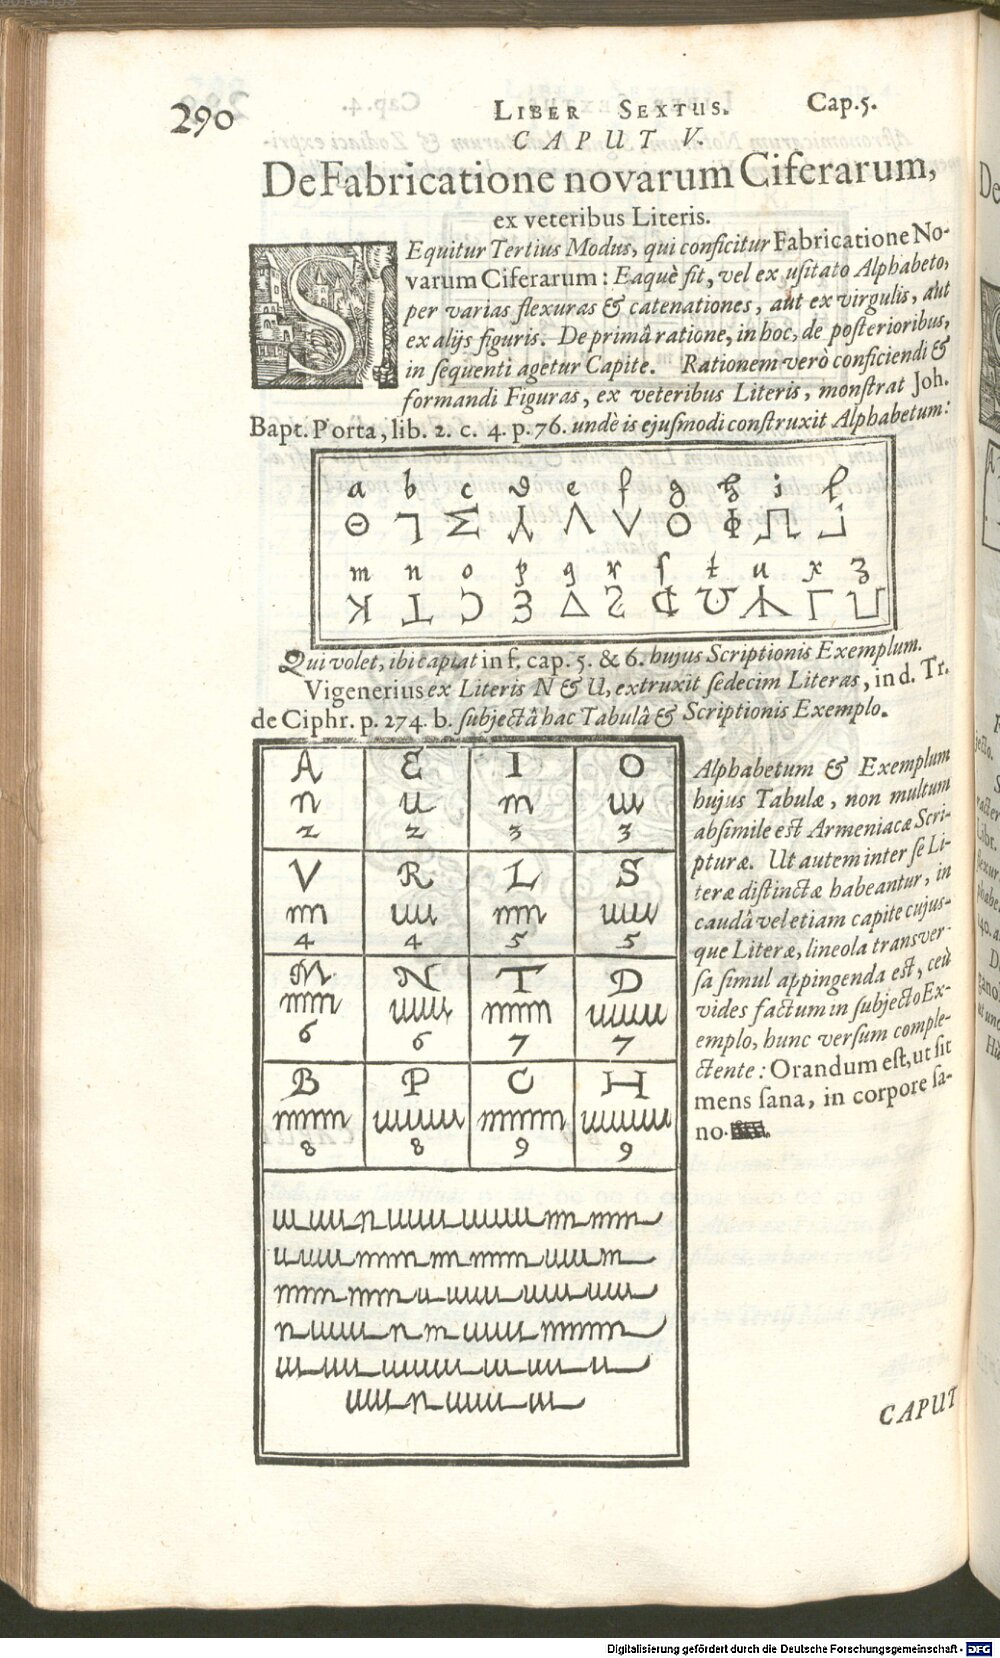 290 LIBER SEXTUS. Cap.5.
CAPUT V.
De Fabricatione novarum Ciferarum,
ex veteribus Literis.
SEquitur Tertius Modus, qui conficitur Fabricatione No-
varum Ciferarum: Eaquè fit, vel ex uſitato Alphabeto,
per varias flexuras & catenationes, aut ex virgulis, aut
ex alijs figuris. De primâ ratione, in hoc, de poſterioribus,
in ſequenti agetur Capite. Rationem verò conficiendi &
formandi Figuras, ex veteribus Literis, monſtrat Joh.
Bapt. Porta, lib. 2. c. 4. p. 76. undè is ejuſmodi conſtruxit Alphabetum:
a b c d e f g h i l
m n o p q r ſ t u x z
Qui volet, ibi captat in f. cap. 5. & 6. hujus Scriptionis Exemplum.
Vigenerius ex Literis N & U, extruxit ſedecim Literas, in d. Tr.
de Ciphr. p. 274. b. ſubjectâ hac Tabulâ & Scriptionis Exemplo.
A E I O
2 2 3 3
V R L S
4 4 5 5
M N T D
6 6 7 7
B P C H
8 8 9 9
Alphabetum & Exemplum
hujus Tabulæ, non multum
abſimile eſt Armeniacæ Scri-
pturæ. Ut autem inter ſe Li-
teræ diſtinctæ habeantur, in
caudâ vel etiam capite cujus-
que Literæ, lineola transver-
ſa ſimul appingenda eſt, ceù
vides factum in ſubjecto Ex-
emplo, hunc verſum comple-
ctente: Orandum eſt, ut ſit
mens ſana, in corpore ſa-
no.
CAPUT
Digitalisierung gefördert durch die Deutsche Forschungsgemeinschaft - DFG